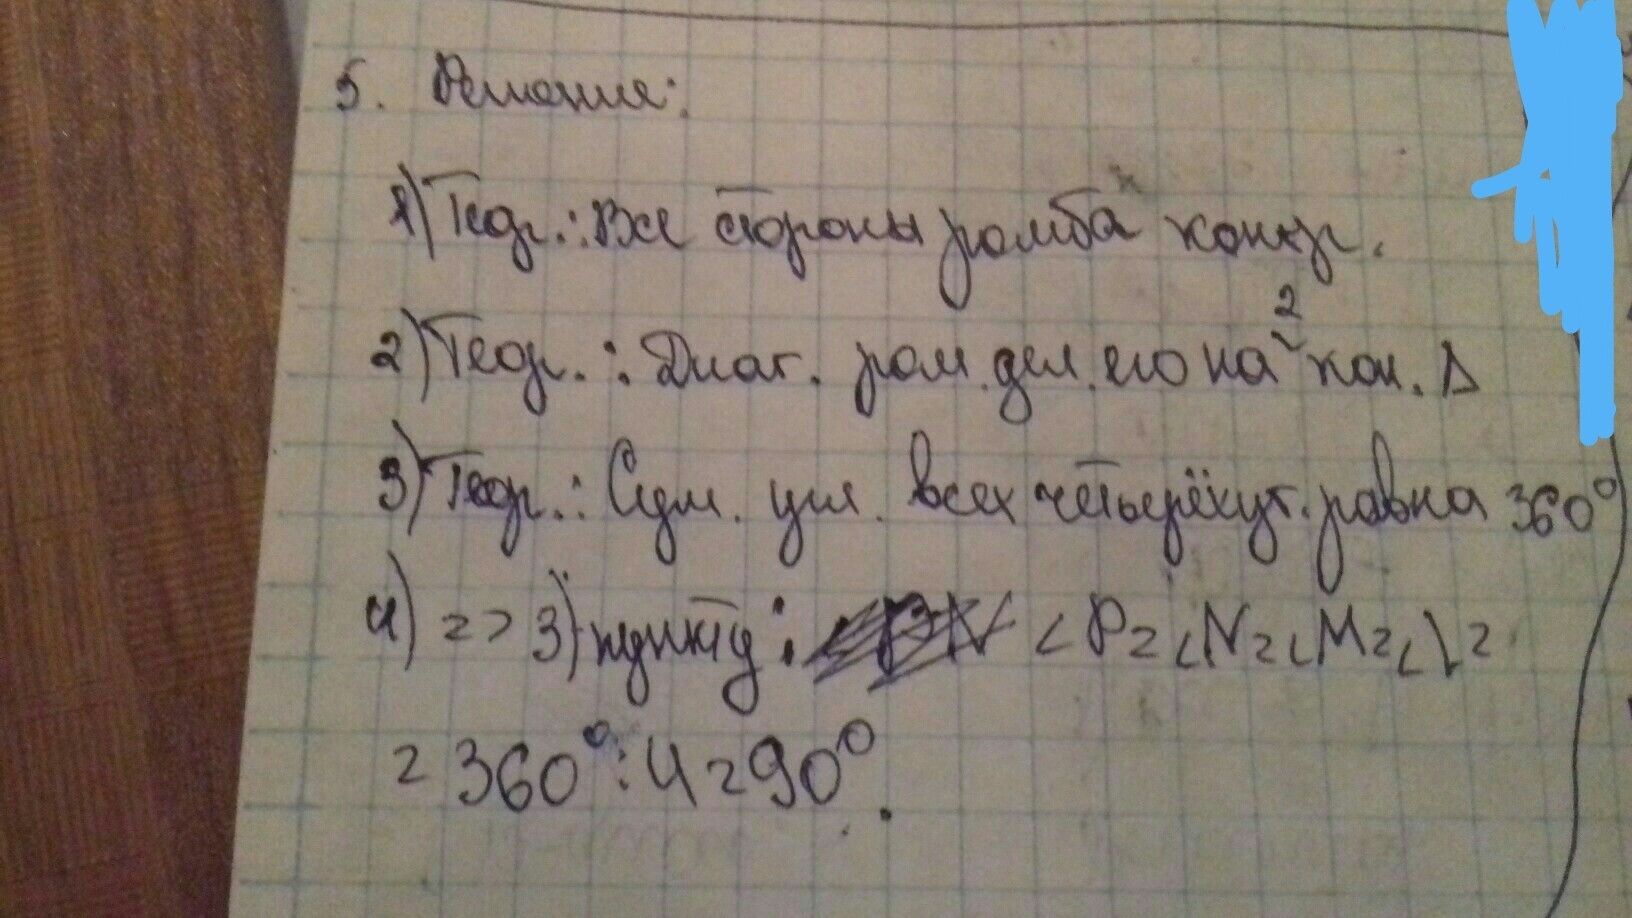 5. Решение:
1) Теор.: Все стороны ромба конгр.
2) Теор.: Диаг. ром. дел. его на 2 кон. Δ
3) Теор.: Сум. угл. всех четырёхуг. равна 360°
4) => 3) пункту: <P=<N=<M=<L=
= 360°:4=90°.